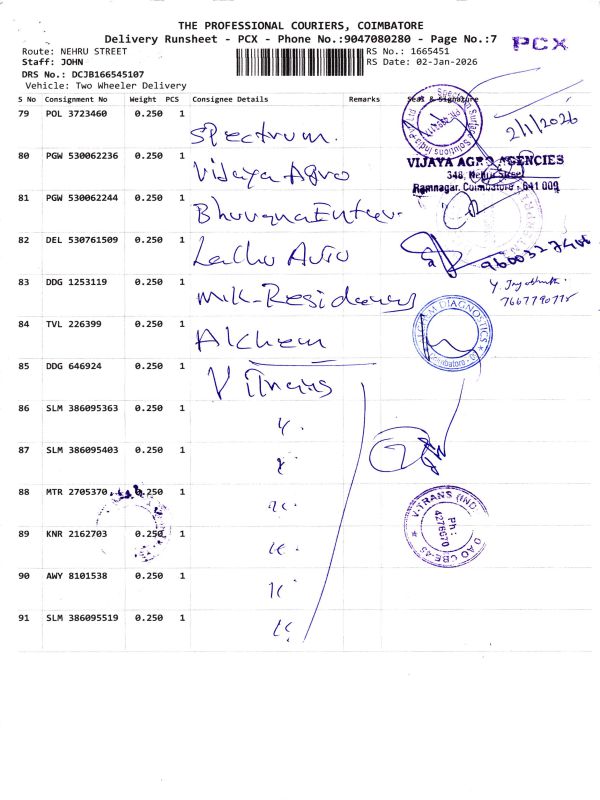 THE PROFESSIONAL COURIERS, COIMBATORE
Delivery Runsheet - PCX - Phone No.:9047080280 - Page No.:7
PCX
Route: NEHRU STREET
RS No.: 1665451
Staff: JOHN
RS Date: 02-Jan-2026
DRS No.: DCJB166545107
Vehicle: Two Wheeler Delivery
S No Consignment No Weight PCS Consignee Details Remarks Seal & Signature
79 POL 3723460 0.250 1 Spectrum.
2/1/2026
80 PGW 530062236 0.250 1 Vijaya Agro
VIJAYA AGRO AGENCIES
348, Nehru Street
Ramnagar, Coimbatore - 641 009
81 PGW 530062244 0.250 1
82 DEL 530761509 0.250 1
83 DDG 1253119 0.250 1
7667790775
84 TVL 226399 0.250 1 Alchem
DIAGNOSTICS
85 DDG 646924 0.250 1 VTrans
86 SLM 386095363 0.250 1
87 SLM 386095403 0.250 1
88 MTR 2705370 0.250 1
V-TRANS (IND
Ph :
4276670
89 KNR 2162703 0.250 1
90 AWY 8101538 0.250 1
91 SLM 386095519 0.250 1